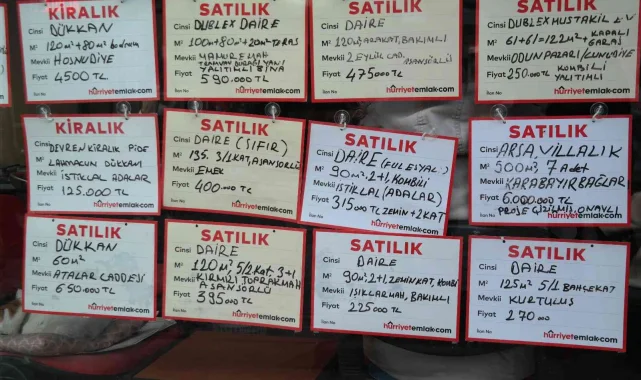 KİRALIK
Cinsi DÜKKAN
M² 120m²+80m² bodrum
Mevkii HOSNUDİYE
Fiyat 4500 TL.
hürriyetemlak.com
SATILIK
Cinsi DUBLEX DAİRE
M² 100m+80m²+20m² TERAS
Mevkii MAMURE MAH
TRAMVAY DURAĞI YANI
YALITIMLI BİNA
Fiyat 590.000 TL
hürriyetemlak.com
SATILIK
Cinsi DAİRE
M² 120m², ARAKAT, BAKIMLI
Mevkii 2 EYLÜL CAD.
Fiyat 475000 TL
hürriyetemlak.com
SATILIK
Cinsi DUBLEX MUSTAKİL EV
M² 61+61=122m²+ KAPALI
GARAJ
Mevkii ODUNPAZARI/
Fiyat 250.000 TL KOMBİLİ
YALITIMLI
hürriyetemlak.com
KİRALIK
Cinsi DEVREN KİRALIK PİDE
M² LAHMACUN DÜKKANI
Mevkii İSTİKLAL ADALAR
Fiyat 125.000 TL
İlan No
hürriyetemlak.com
SATILIK
Cinsi DAİRE (SIFIR)
M² 135. 3/1 KAT, ASANSÖRLÜ
Mevkii EMEK
Fiyat 400.000 TL
İlan No
hürriyetemlak.com
SATILIK
Cinsi DAİRE (FULEŞYALI)
M² 90m², 2+1, KOMBİLİ
Mevkii İSTİKLAL (ADALAR)
Fiyat 315000 TL ZEMİN+2KAT
İlan No
hürriyetemlak.com
SATILIK
Cinsi ARSA, VİLLALIK
M² 500m², 7 adet
Mevkii KARABAYIR BAĞLAR
Fiyat 6.000.000 TL
PROJE ÇİZİLMİŞ, ONAYLI
İlan No
hürriyetemlak.com
SATILIK
Cinsi DÜKKAN
M² 60m²
Mevkii ATALAR CADDESİ
Fiyat 650.000 TL
İlan No
hürriyetemlak.com
SATILIK
Cinsi DAİRE
M² 120m², 5/2 Kat 3+1
Mevkii KIRMIZI TOPRAK MAH
ASANSÖRLÜ
Fiyat 395000 TL
İlan No
hürriyetemlak.com
SATILIK
Cinsi DAİRE
M² 90m², 2+1, ZEMİN KAT, KOMBİ
Mevkii IŞIKLAR MAH, BAKIMLI
Fiyat 225000 TL
İlan No
hürriyetemlak.com
SATILIK
Cinsi DAİRE
M² 125m² 5/1 BAHÇEKAT
Mevkii KURTULUŞ
Fiyat 270 000
İlan No
hürriyetemlak.com